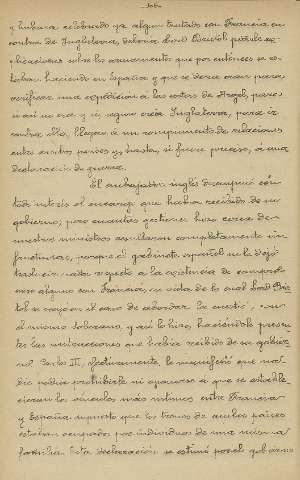 y hubiera celebrado ya algun tratado con Francia en
contra de Inglaterra, debería Lord Bristol pedirle ex-
plicaciones sobre los armamentos que por entonces se es-
taban haciendo en España y que se decia eran para
verificar una expedición á las costas de Argel, pero
si así no era y se seguia creia Inglaterra, para ir
contra ella, llegar á un rompimiento de relaciones
entre ambos paises y, hasta, si fuere preciso, á una
declaración de guerra.
El embajador inglés desempeñó con
todo interés el encargo que habia recibido de su
gobierno; pero cuantas gestiones hizo cerca de
nuestros ministros resultaron completamente in-
fructuosas, porque el gabinete español no le dejó
traducir nada respecto á la existencia de compromi-
sos alguno con Francia, en vista de lo cual Lord Bris-
tol se encontró en el caso de abordar la cuestión con
el mismo soberano, y así lo hizo, haciéndole presen-
tes las instrucciones que habia recibido de su gobier-
no. Carlos III, efectivamente, le manifestó que na-
die podria prohibirle ni oponerse á que se estable-
cieran los vínculos más intimos entre Francia
y España supuesto que los tronos de ambos paises
estaban ocupados por individuos de una misma
familia. Esta declaración se estimó por el gobierno